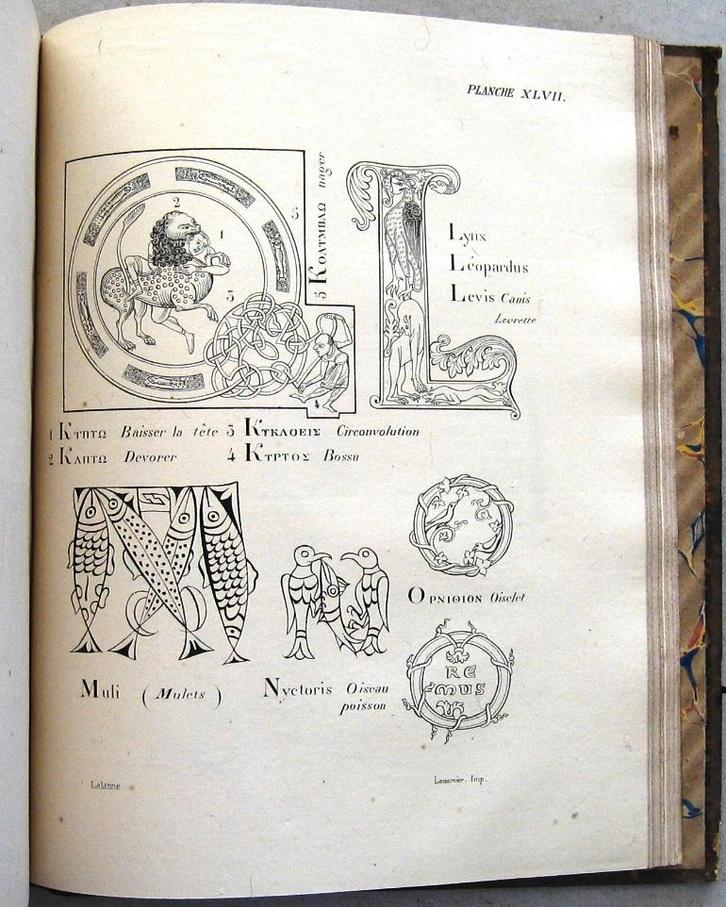 PLANCHE XLVII.
2
1
3
5
5 ΚΟΛΥΜΒΛΩ nager
Lynx
Léopardus
Levis Canis
Levrette
1 ΚΥΠΤΩ Baisser la tête 3 ΚΥΚΛΟΕΙΣ Circonvolution
2 ΚΑΠΤΩ Devorer 4 ΚΥΡΤΟΣ Bossu
ΟΡΝΙΘΙΟΝ Oiselet
RE
MUS
Muli ( Mulets )
Nyctoris Oiseau
poisson
Lalanne
Lemercier. Imp.